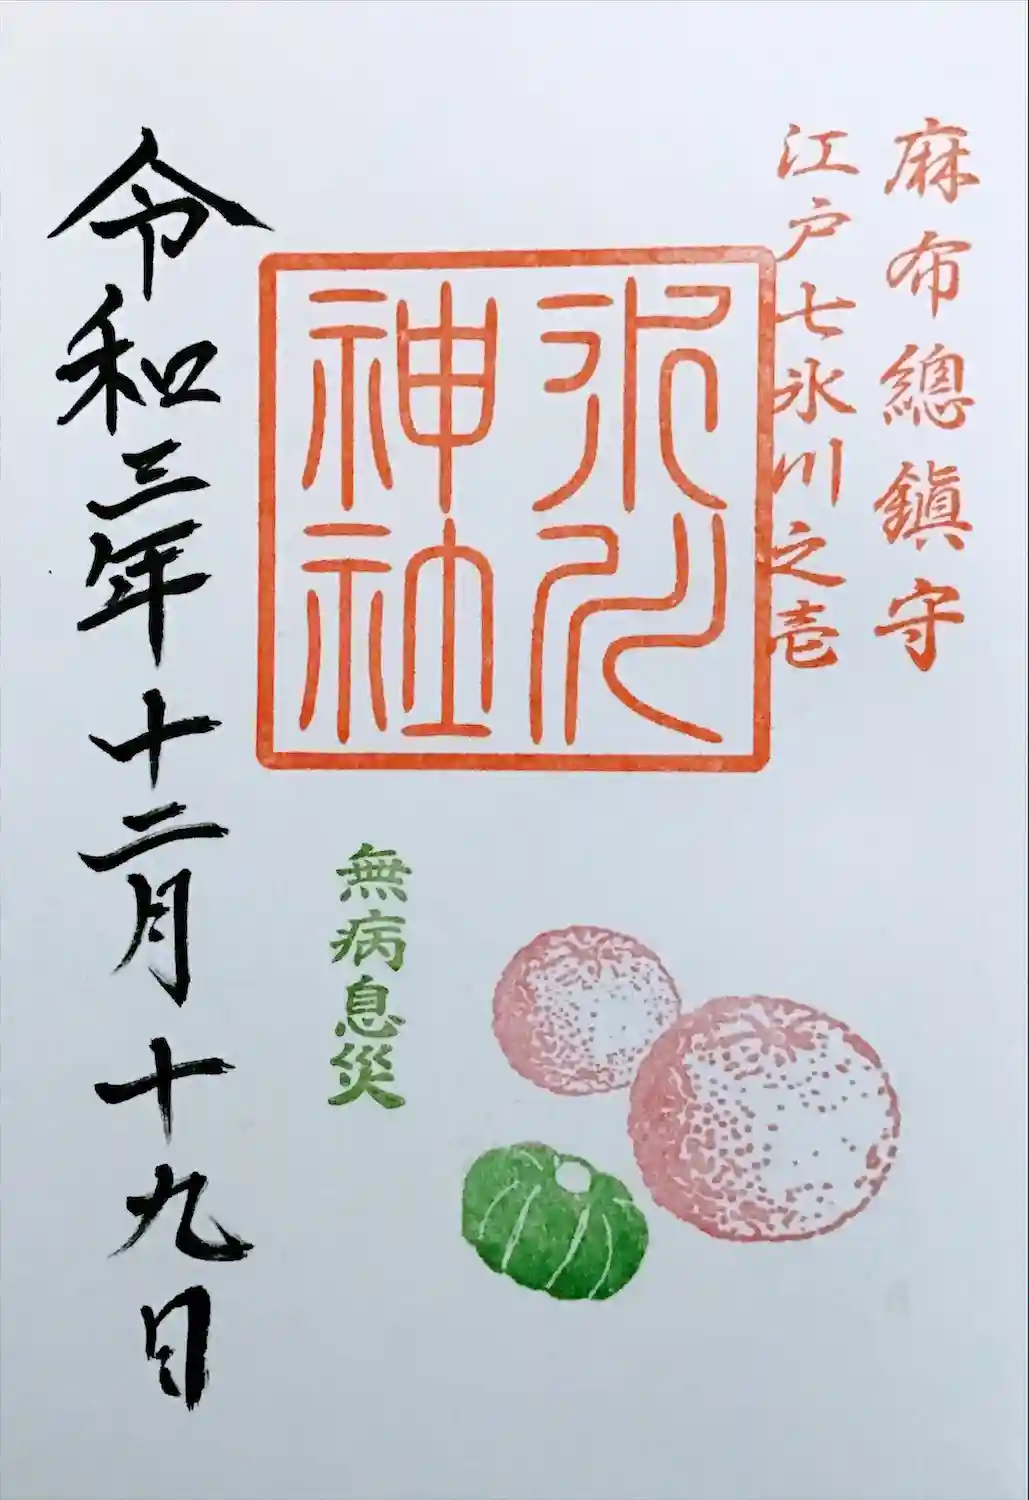 麻布總鎮守
江戸七氷川之壱
氷川
神社
無病息災
令和三年十二月十九日